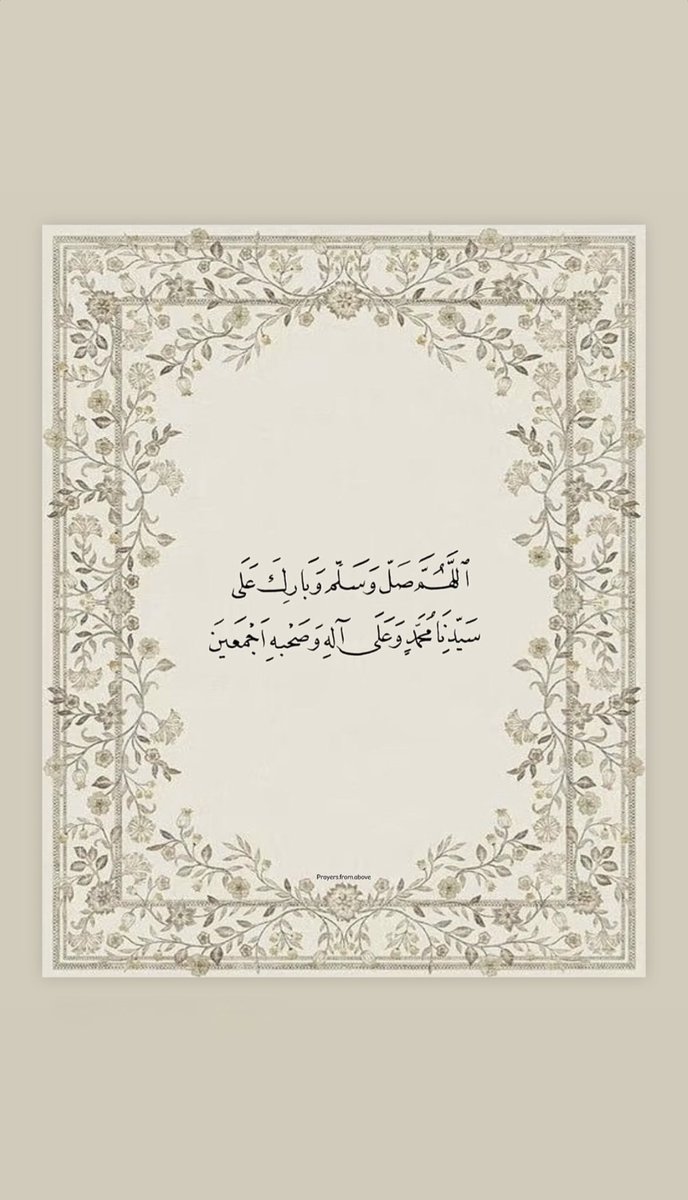 ٱللَّهُمَّ صَلِّ وَسَلِّم وَبَارِكَ عَلَى
سَيِّدِنَا مُحَمَّدٍ وَعَلَى آلِهِ وَصَحْبِهِ اَجْمَعِينَ
Prayers.from.above